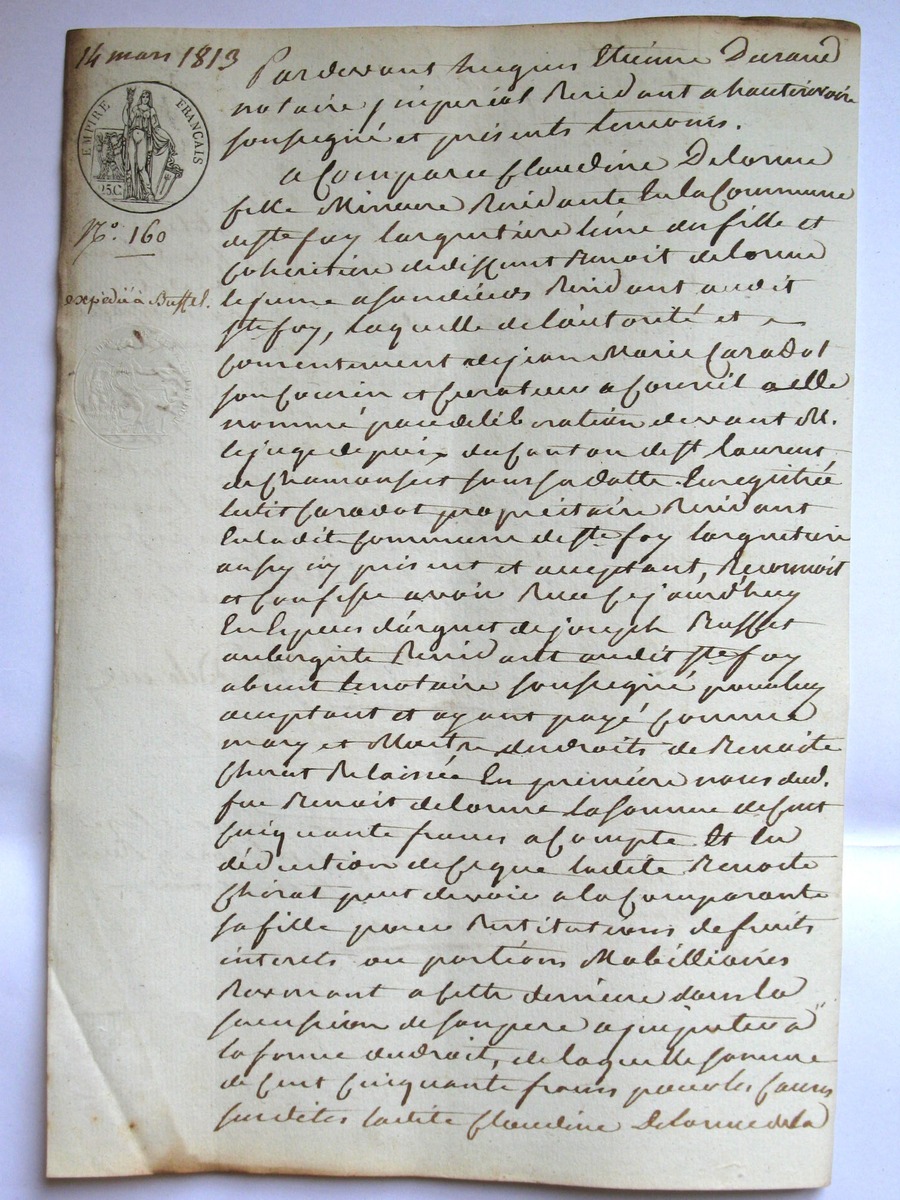 14 mars 1813
EMPIRE FRANÇAIS
25.C.
N.° 160
expédié à Buffet.
Pardevant hugues Etienne Durand
notaire jmperial Residant a hauterivoire
soussigné et présents temoins.
a Comparu Claudine Delorme
fille Mineure Residante En la Commune
de ste foy largentiere l'une des fille et
Coheritiere de deffunt Benoit delorme
Residant audit
ste foy, laquelle de l'autorité et
Consentement de jean Marie Caradot
son Cousin et Curateur a Conseil a elle
nommé par deliberation devant M.
le juge de paix du Canton de st laurent
de Chamousset sous sa datte Enregistrée
ledit Caradot propriétaire Residant
En la dite Commune de ste foy largentiere
aussy icy présent et acceptant, Reconnoit
et Confesse avoir Reçu Cejourd'huy
En Especes d'argent de joseph Buffet
aubergiste Residant audit ste foy
absent le notaire soussigné pour luy
acceptant et ayant payé Comme
mary et Maitre des droits de Benoite
Chirat Relaissée En première noces dud.
feu Benoit delorme la somme de Cent
Cinquante francs a Compte Et En
déduction de Ce que ladite Benoite
Chirat peut devoir a la Comparante
sa fille pour Restitutions de fruits
interets ou portions Mobilliaires
Revenant a Cette derniere dans la
succession de son pere a jmputer à
la forme du droit, de laquelle somme
de Cent Cinquante francs pour les Causes
susdites ladite Claudine Delorme de la